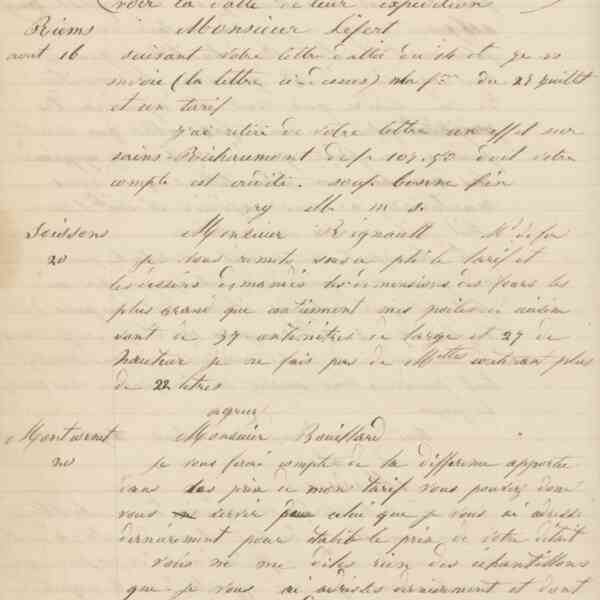 (voir la date de leur expédition
Reims Monsieur Lefert
aout 16 suivant votre lettre datée du 14 et je vs
envoie (la lettre ci dessus) ma fre du 25 juillet
et un tarif
j'ai retiré de votre lettre un effet sur
sains Richaumont de fr 107.50 dont votre
compte est crédité. sauf bonne fin
Soissons Monsieur Rignault Md de fer
20 je vous remets sous ce pli le tarif et
les dessins demandés les dimensions des fours les
plus grand que contiennent mes poêles de cuisine
sont de 37 centimètres de large et 27 de
hauteur je ne fais pas de Mttes contenant plus
de 22 litres
agréez
Montcornet Monsieur Bouillard
20 je vous ferai compte de la différence apportée
dans les prix de mon tarif vous pouvez donc
vous en servir pour celui que je vous ai adressé
dernièrement pour établir le prix de votre détail
vous ne me dites rien des échantillons
que je vous ai adressés dernièrement et dont